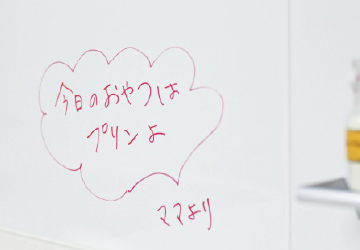 今日のおやつは
プリンよ
ママより